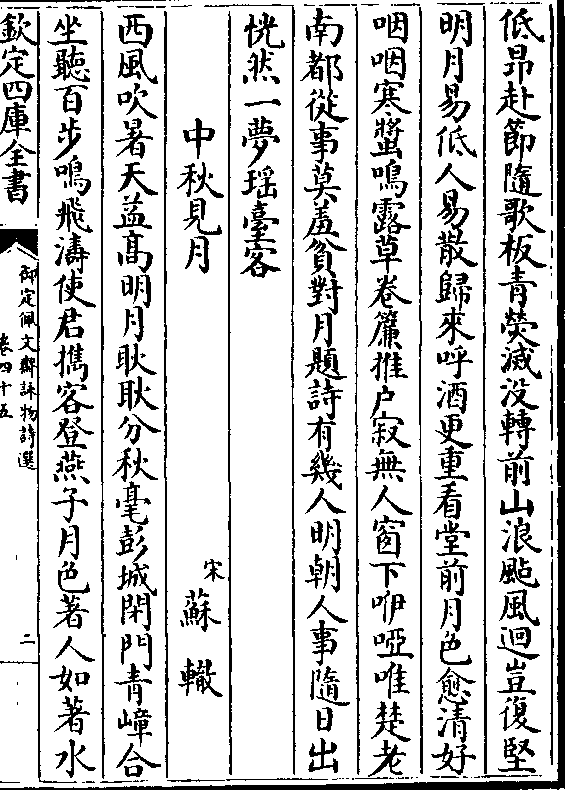 低昻赴節隨歌板青熒滅没轉前山浪颭風迴豈復堅
明月易低人易散歸來呼酒更重看堂前月色愈清好
咽咽寒螿鳴露草卷簾推户寂無人窗下咿啞唯楚老
南都從事莫羞貧對月題詩有幾人明朝人事隨日出
恍然一夢瑶臺客
中秋見月
宋
蘇轍
西風吹暑天益髙明月耿耿分秋毫彭城閉門青嶂合
坐聽百步鳴飛濤使君擕客登燕子月色著人如著水
欽定四庫全書
御定佩文齋詠物詩選
卷四十五
二